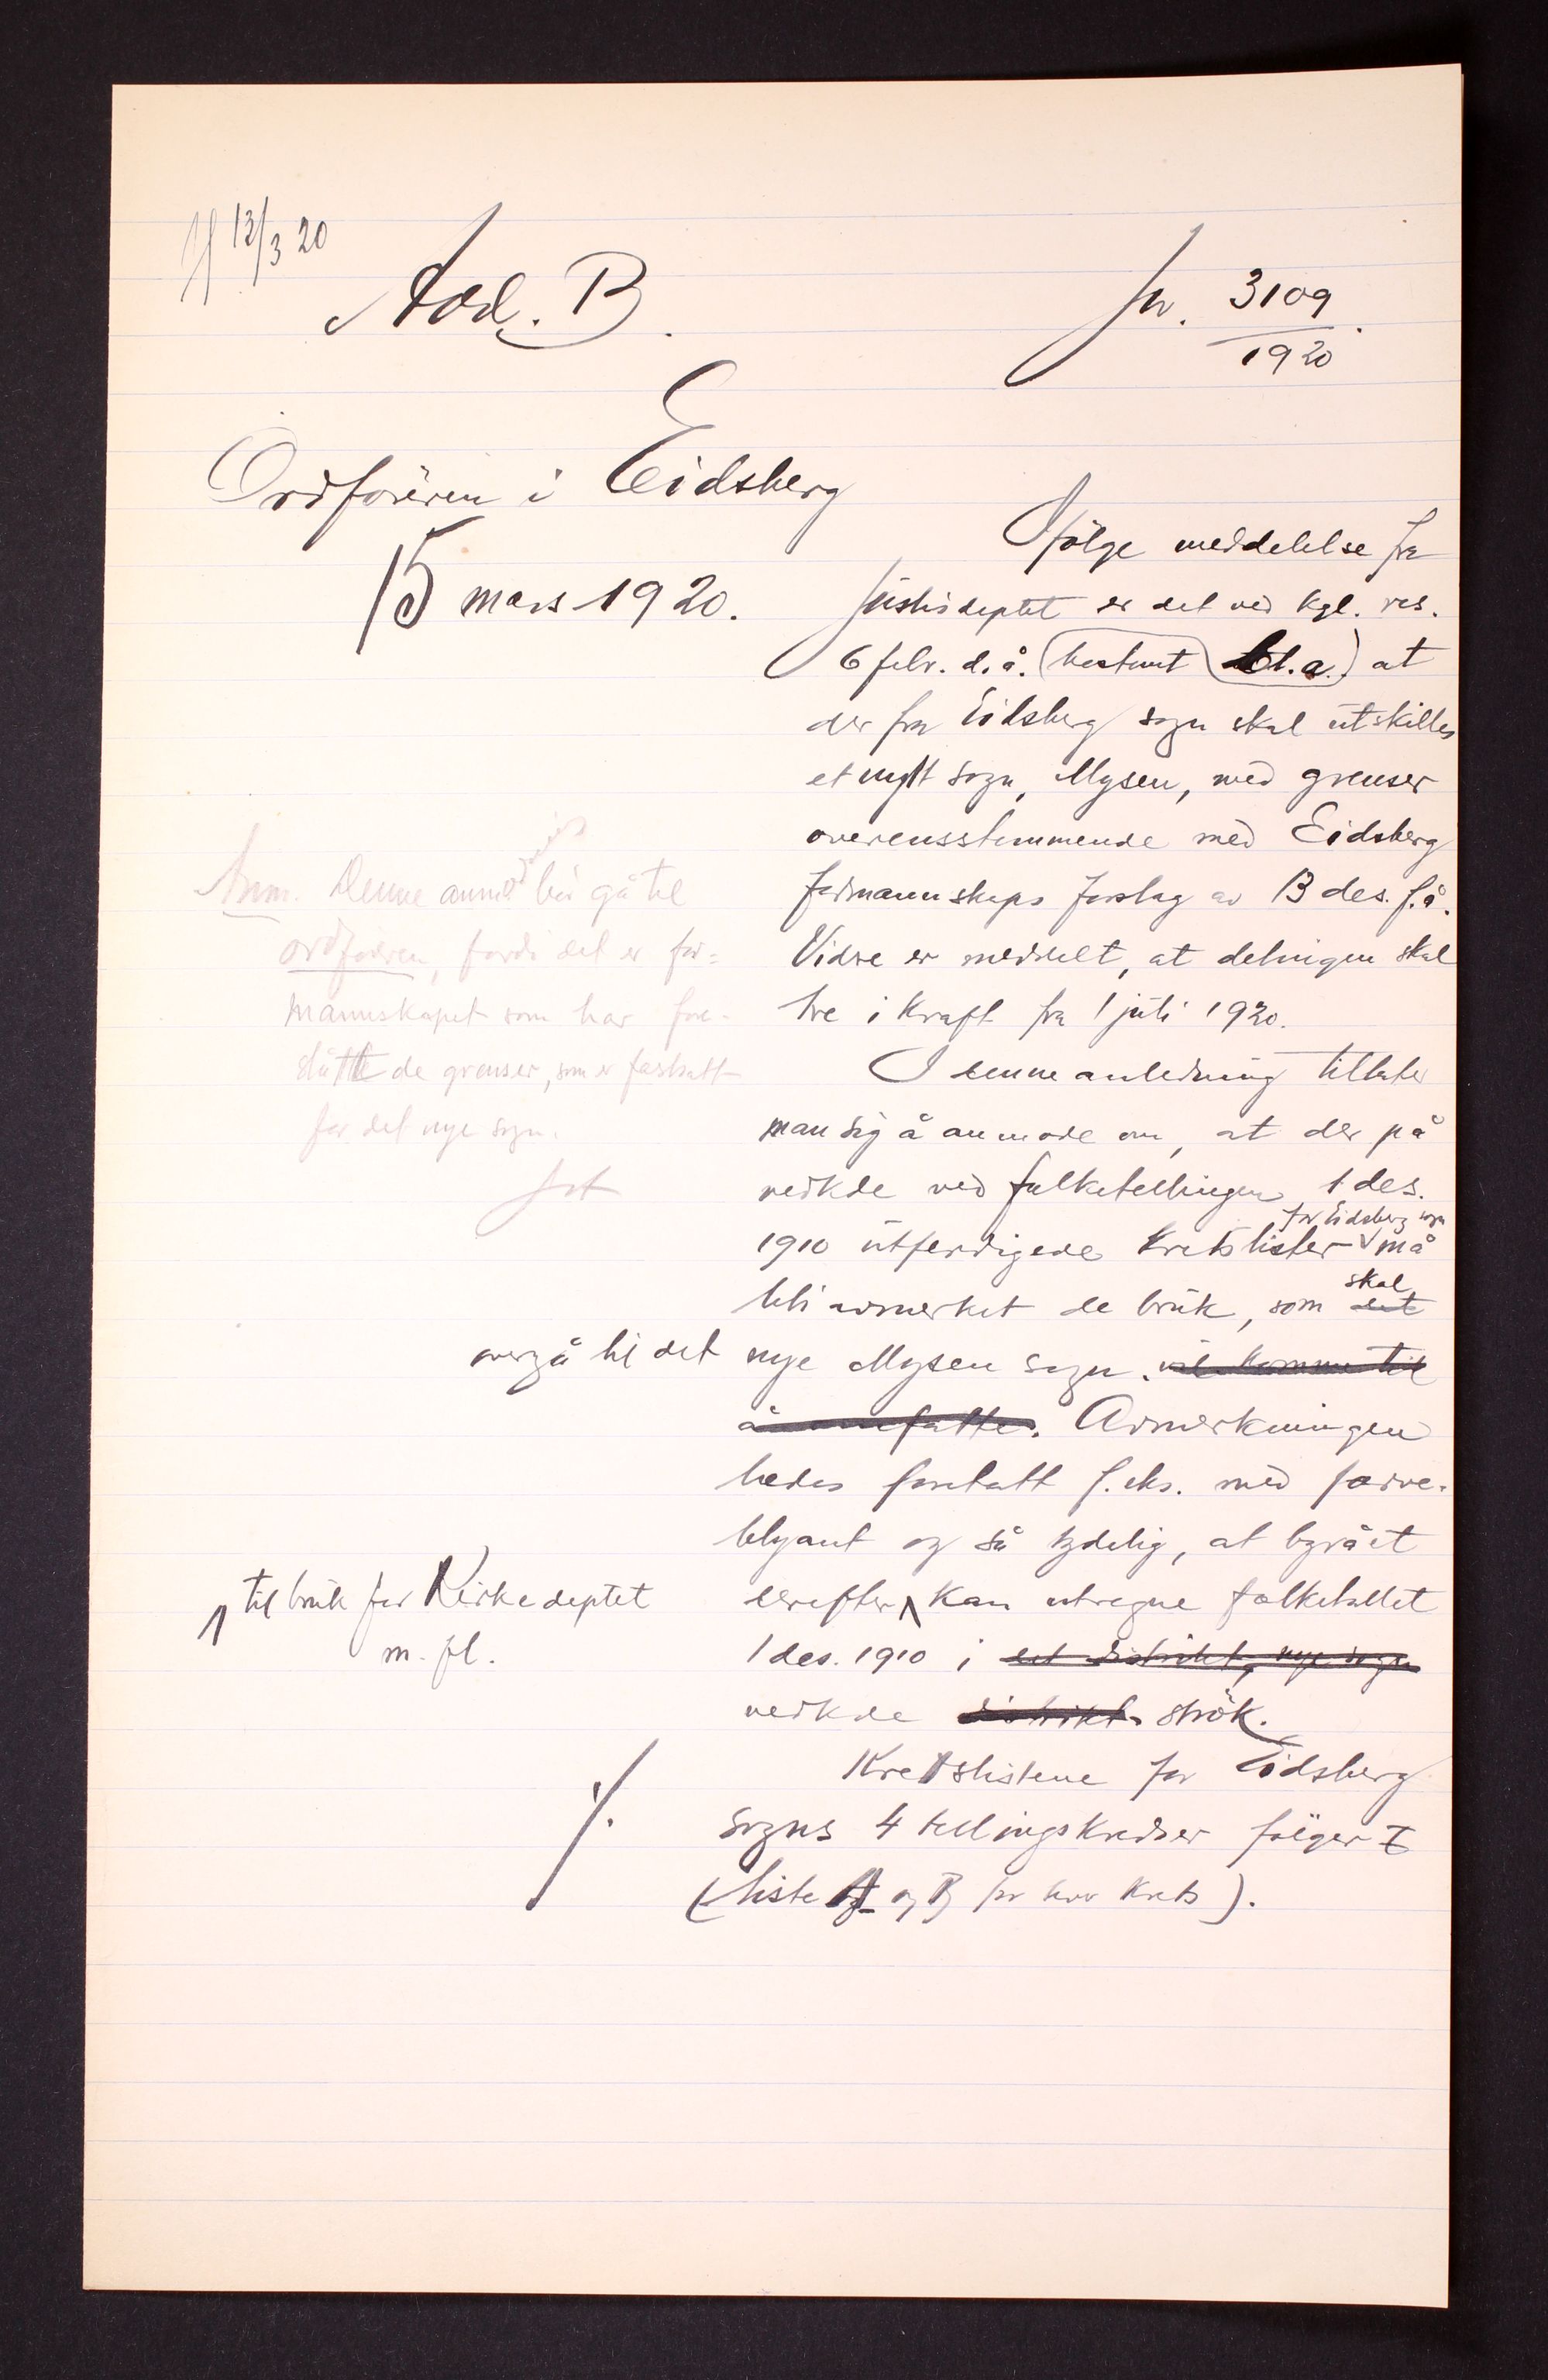 12/3 20
Avd. B.
Jnr. 3109
1920
Ordføreren i Eidsberg
15 mars 1920.
Ifölge meddelelse fra
justisdeptet er det ved kgl. res.
6 febr. d. å. bestemt bl. a. at
der fra Eidsberg sogn skal utskilles
et nytt sogn, Mysen, med grenser
overensstemmende med Eidsberg
formannskaps forslag av 13 des. f. å.
Vidre er meddelt, at delingen skal
tre i kraft fra 1 juli 1920.
I denne anledning tillater
man sig å anmode om, at der på
vedkde ved folketellingen 1 des.
1910 utferdigede kretslister for Eidsberg sogn må
bli avmerket de bruk, som det skal
overgå til det nye Mysen sogn. vil komme til
å omfatte. Avmerkningen
bedes foretatt f. eks. med farve-
blyant og så tydelig, at byrået
derefter til bruk for Kirkedeptet
m. fl.
kan utregne folketallet
1 des. 1910 i det distrikt, nye sogn
vedkde distrikt strök.
Kretslistene for Eidsberg
sogns 4 tellingskredser fölger
(liste A og B for hver krets).
Anm. Denne anmod bör gå til
ordföreren, fordi det er for-
mannskapet som har fore-
slått de grenser, som er fastsatt
for det nye sogn.